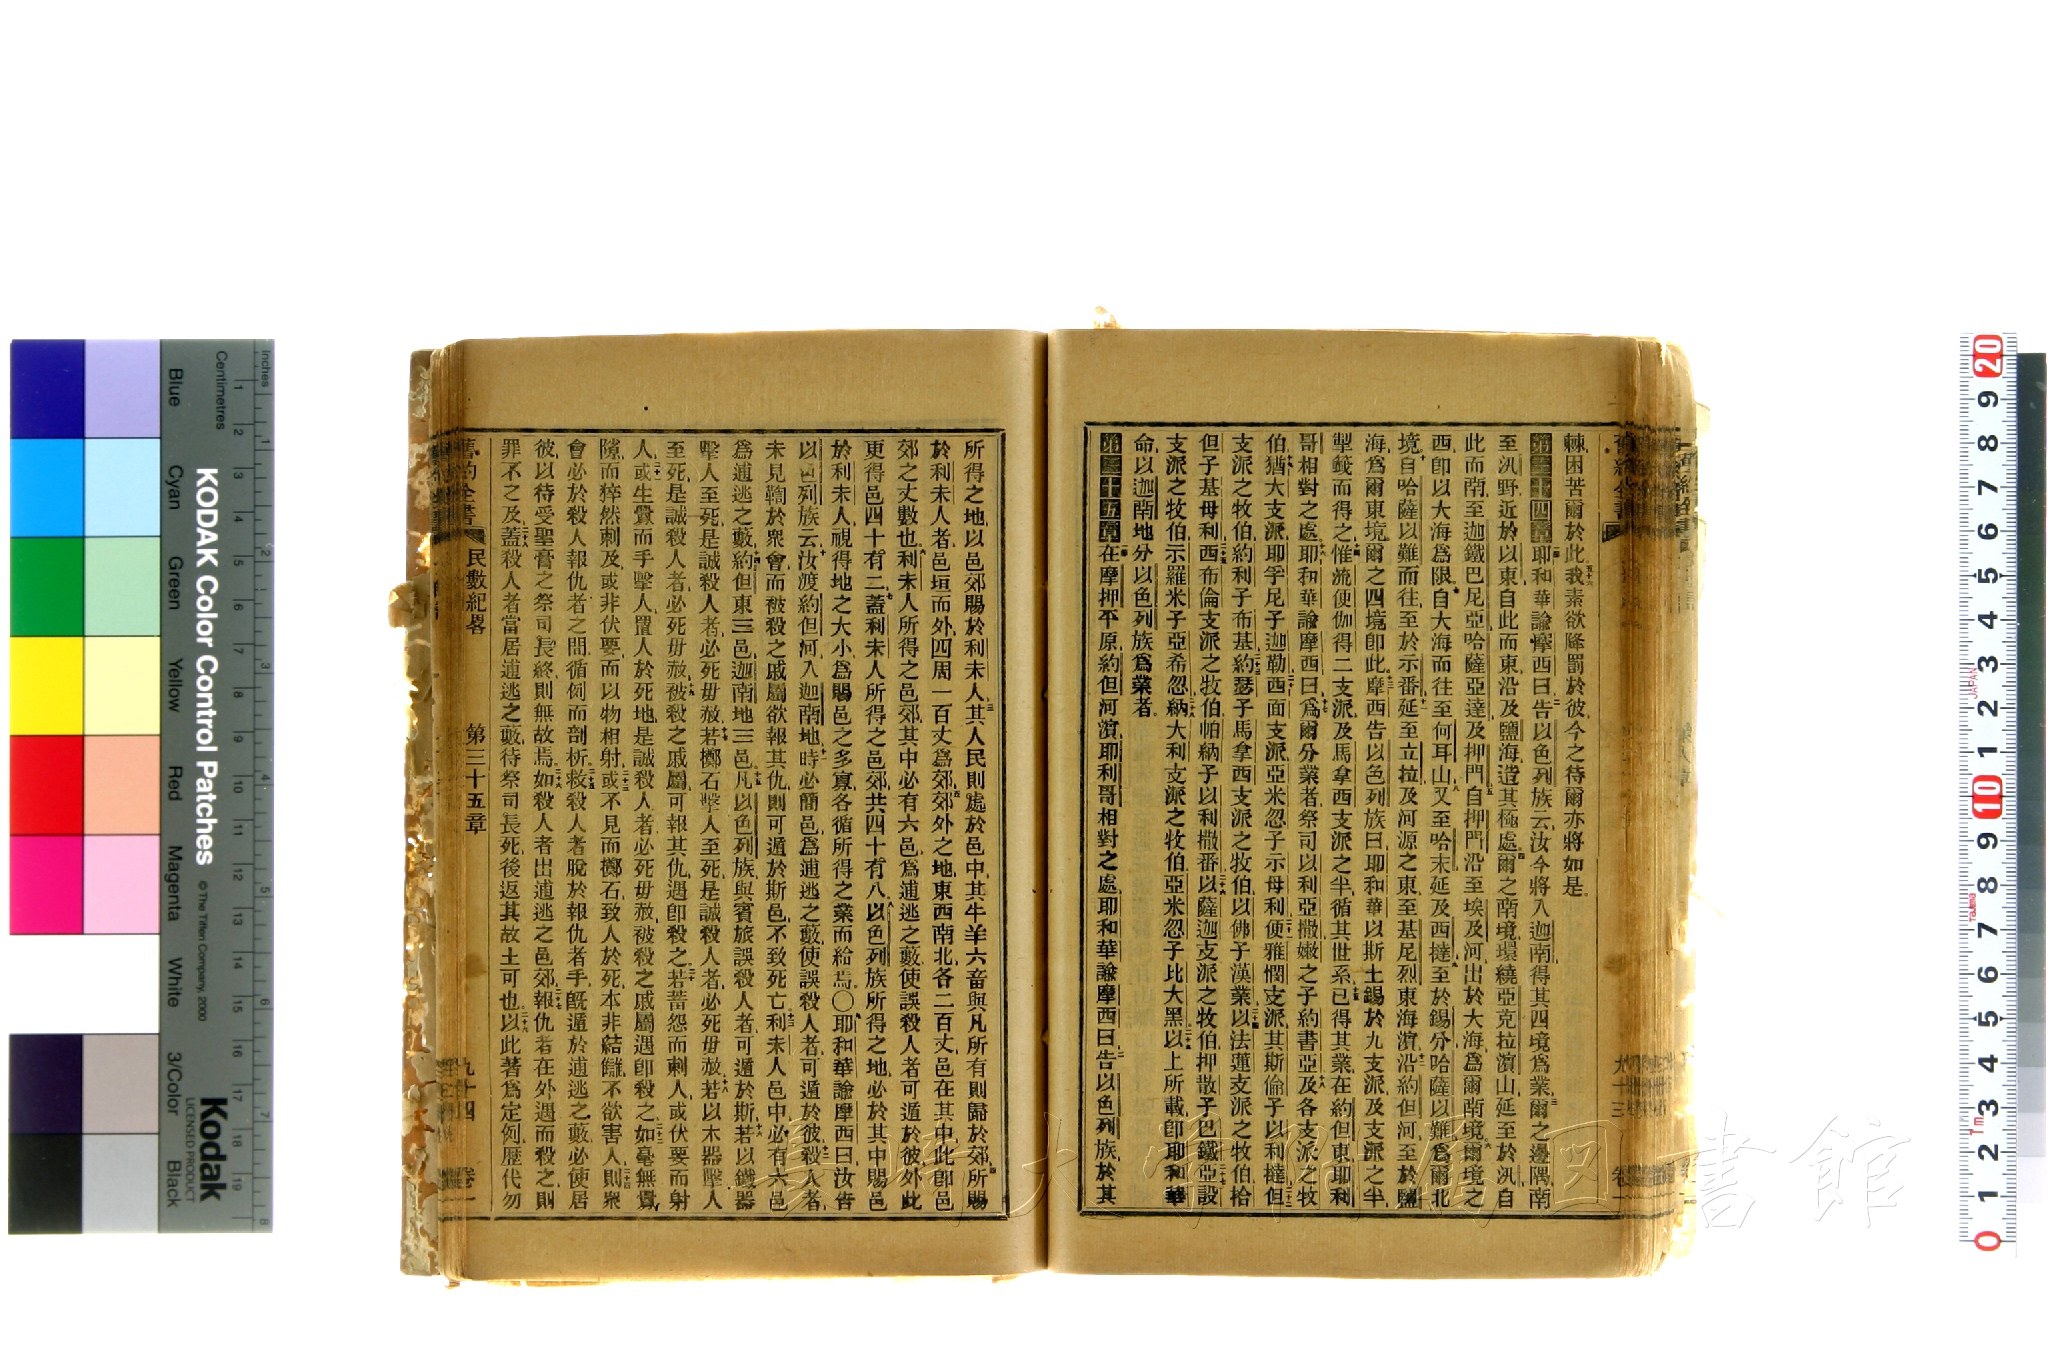 棘困苦爾於此我素欲降罰於彼今之待爾亦將如是
第三十四章耶和華諭摩西曰告以色列族云汝今將入迦南得其四境爲業爾之邊隅南
至汛野近於以東自此而東沿及鹽海造其極處爾之南境環繞亞克拉濱山延至於汛自
此而南至迦鐵巴尼亞哈薩亞達及押門自押門沿至埃及河出於大海爲爾南境爾境之
西卽以大海爲限自大海而往至何耳山又至哈末延及西撻至於錫分哈薩以難爲爾北
境自哈薩以難而往至於示番延至立拉及河源之東至基尼烈東海濱沿約但河至於鹽
海爲爾東境爾之四境卽此摩西告以色列族曰耶和華以斯土錫於九支派及支派之半
掣籤而得之惟流便伽得二支派及馬拿西支派之半循其世系已得其業在約但東耶利
哥相對之處耶和華諭摩西曰爲爾分業者祭司以利亞撒嫩之子約書亞及各支派之牧
伯猶大支派耶孚尼子迦勒西面支派亞米忽子示母利便雅憫支派其斯倫子以利撻但
支派之牧伯約利子布基約瑟子馬拿西支派之牧伯以佛子漢業以法蓮支派之牧伯拾
但子基母利西布倫支派之牧伯帕納子以利撒番以薩迦支派之牧伯押散子巴鐵亞設
支派之牧伯示羅米子亞希忽納大利支派之牧伯亞米忽子比大黑以上所載卽耶和華
命以迦南地分以色列族爲業者
第三十五章在摩押平原約但河濱耶利哥相對之處耶和華諭摩西曰告以色列族於其
所得之地以邑郊賜於利未人其人民則處於邑中其牛羊六畜與凡所有則歸於郊所賜
於利未人者邑垣而外四周一百丈爲郊郊外之地東西南北各二百丈邑在其中此卽邑
郊之丈數也利未人所得之邑郊其中必有六邑爲逋逃之藪使誤殺人者可遁於彼外此
更得邑四十有二蓋利未人所得之邑郊共四十有八以色列族所得之地必於其中賜邑
於利未人視得地之大小爲賜邑之多寡各循所得之業而給焉〇耶和華諭摩西曰汝告
以色列族云汝渡約但河入迦南地時必簡邑爲逋逃之藪使誤殺人者可遁於彼殺人者
未見鞫於衆會而被殺之戚屬欲報其仇則可遁於斯邑不致死亡利未人邑中必有六邑
爲逋逃之藪約但東三邑迦南地三邑凡以色列族與賓旅誤殺人者可遁於斯若以鐵器
擊人至死是誠殺人者必死毋赦若擲石擊人至死是誠殺人者必死毋赦若以木器擊人
至死是誠殺人者必死毋赦被殺之戚屬可報其仇遇卽殺之若蓄怨而刺人或伏要而射
人或生釁而手擊人置人於死地是誠殺人者必死毋赦被殺之戚屬遇卽殺之如毫無釁
隙而猝然刺及或非伏要而以物相射或不見而擲石致人於死本非結讎不欲害人則衆
會必於殺人報仇者之間循例而剖析救殺人者脫於報仇者手旣遁於逋逃之藪必使居
彼以待受聖膏之祭司長終則無故焉如殺人者出逋逃之邑郊報仇者在外遇而殺之則
罪不之及蓋殺人者當居逋逃之藪待祭司長死後返其故土可也以此著爲定例歷代勿
舊約全書 民數紀畧 第三十五章 九十四 卷一
KODAK Color Control Patches
© The Tiffen Company, 2000
Kodak
LICENSED PRODUCT
Inches
Centimetres
Blue
Cyan
Green
Yellow
Red
Magenta
White
3/Color
Black